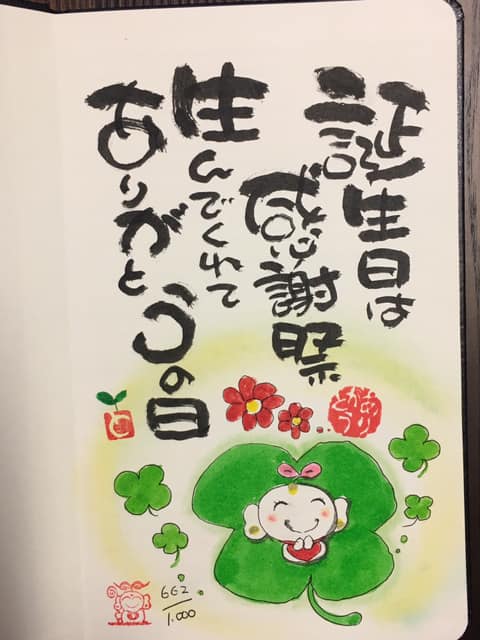 誕生日は
感謝祭
生んでくれて
ありがとうの日
662
1.000